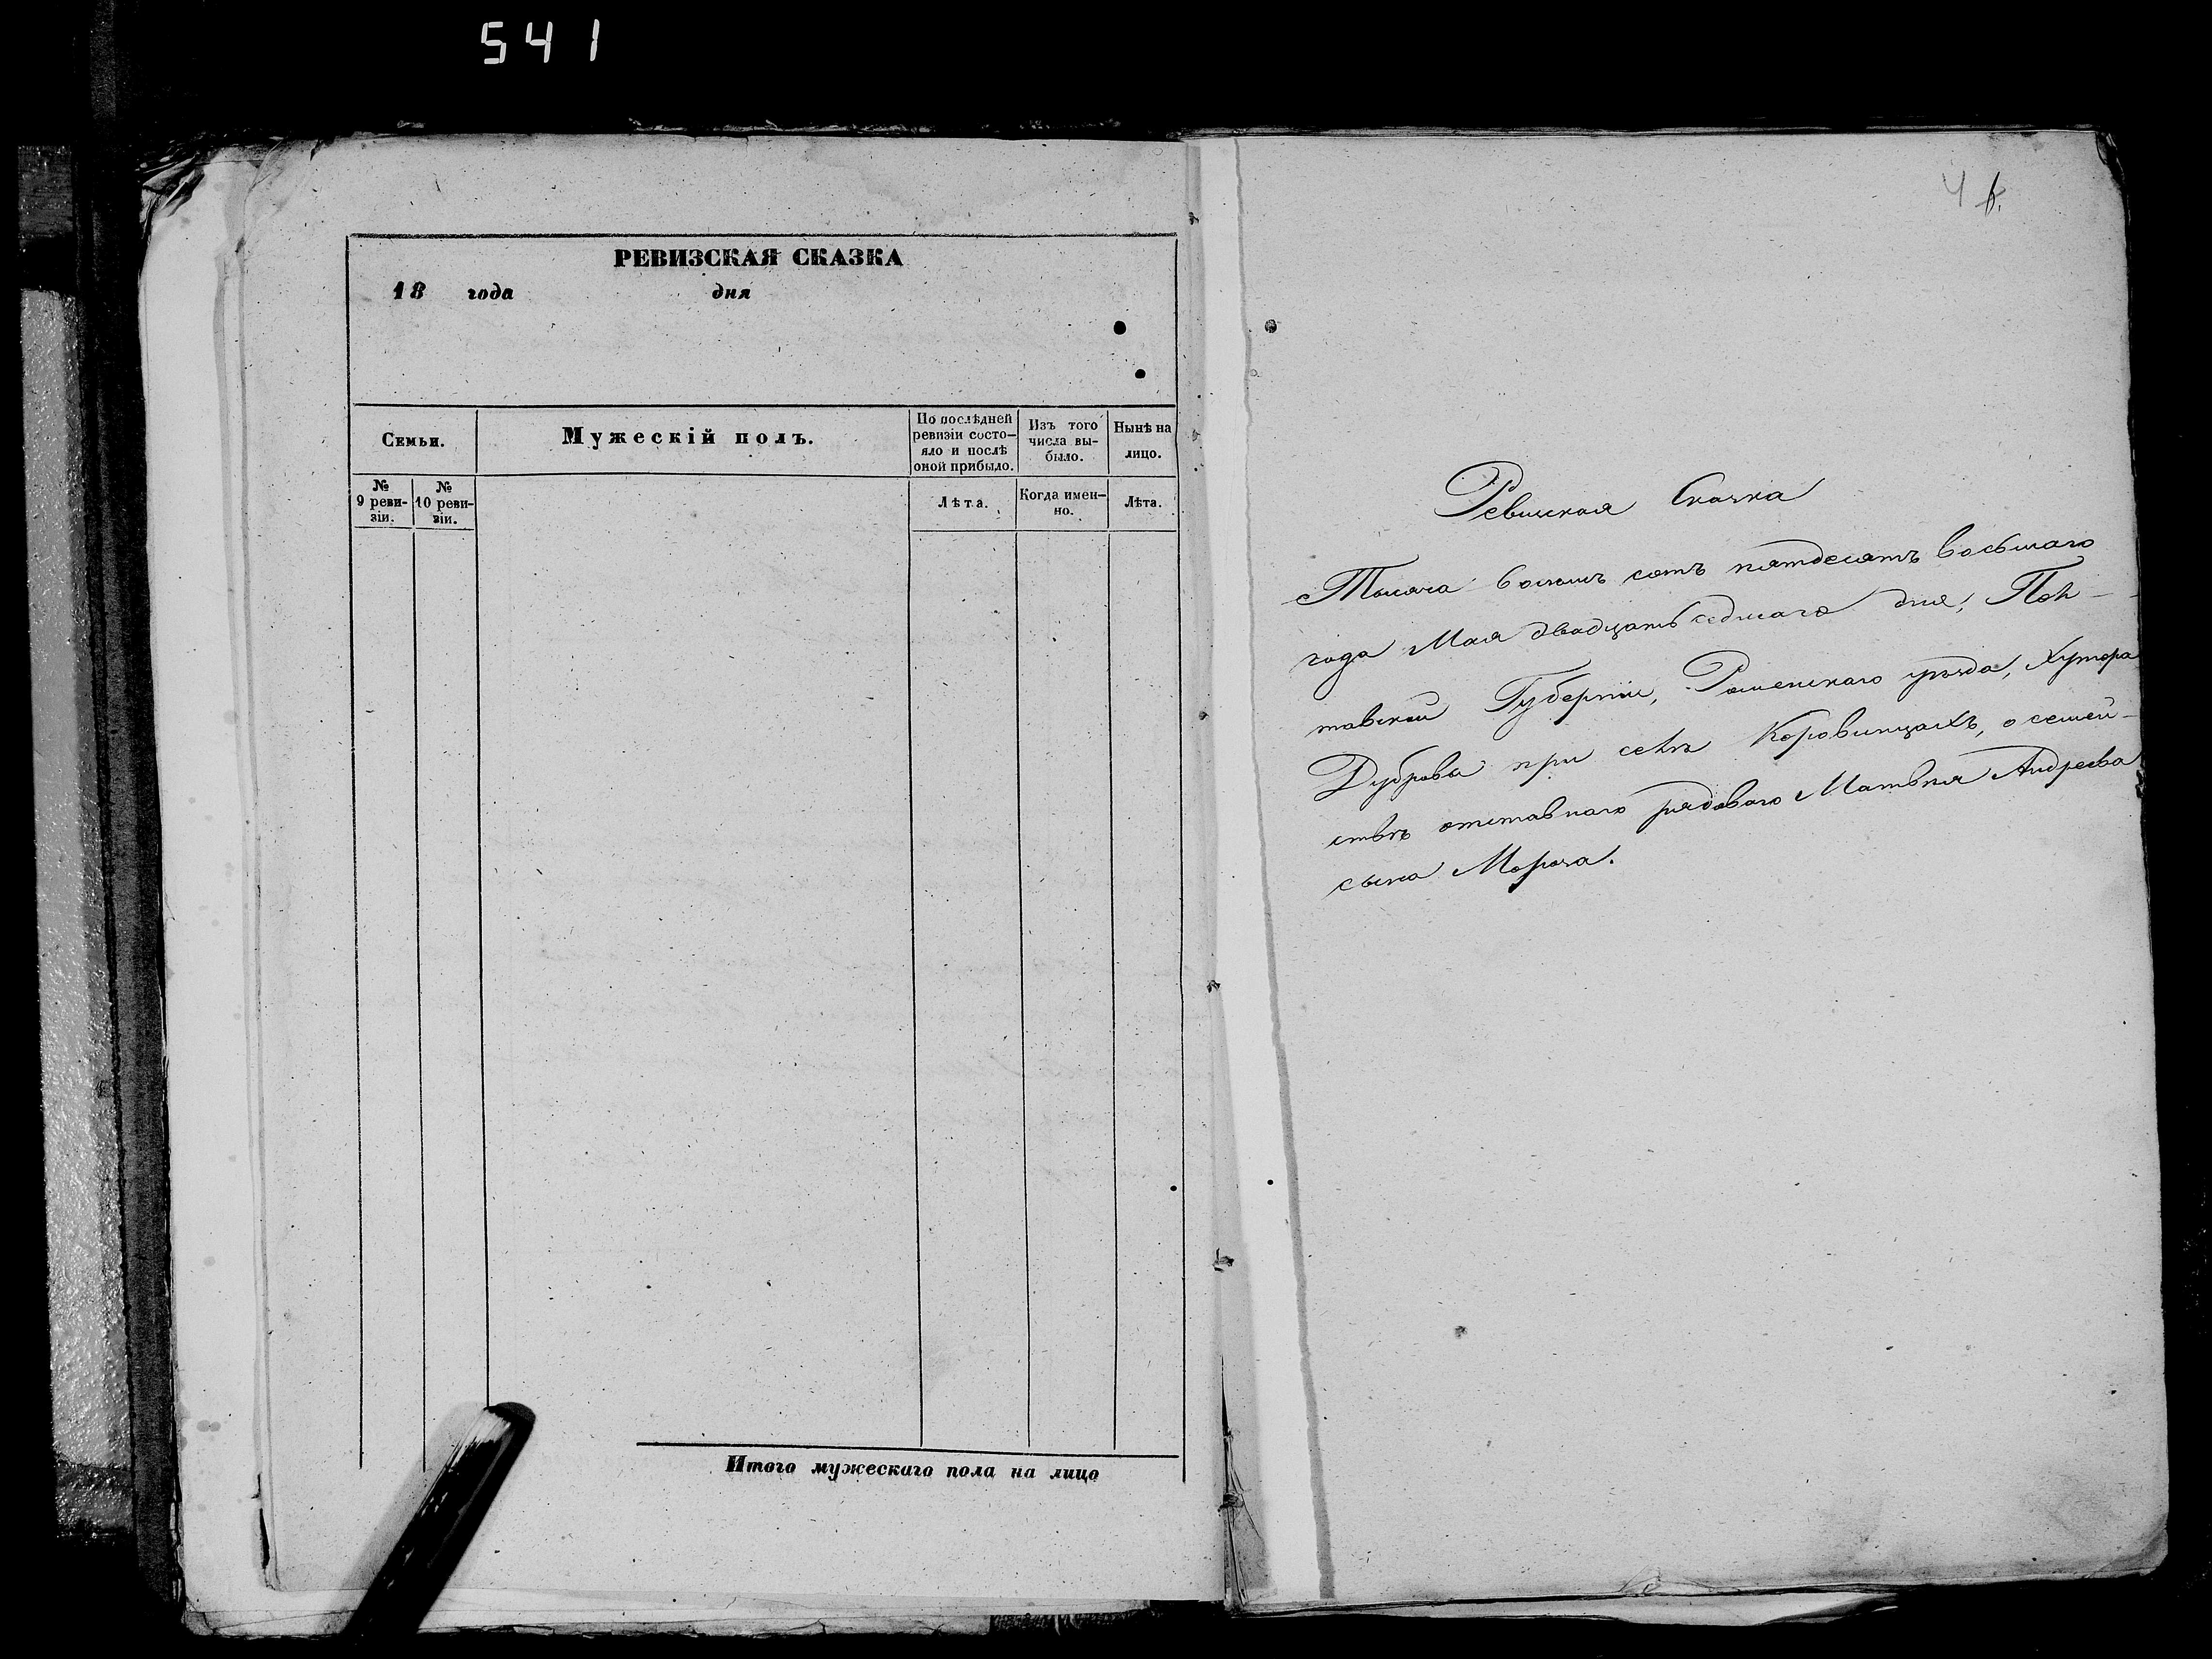 541
РЕВИЗСКАЯ СКАЗКА
18 года дня
Семьи.
Мужескій полъ.
По послѣдней ревизіи состо-
яло и послѣ оной прибыло.
Изъ того числа вы-
было.
Нынѣ на лицо.
№ 9 реви-
зіи.
№ 10 реви-
зіи.
Лѣта.
Когда имен-
но.
Лѣта.
Итого мужескаго пола на лицо
4
Ревизская Сказка
Тысяча восемь сотъ пятдесятъ восьмаго
года Мая двадцать седмаго дня, Пол-
тавской Губерніи, Роменскаго уѣзда, Хутора
Дуброва при селѣ Коровинцахъ, о семей-
ствѣ отставнаго рядоваго Матвѣя Андреева
сына Мороза.